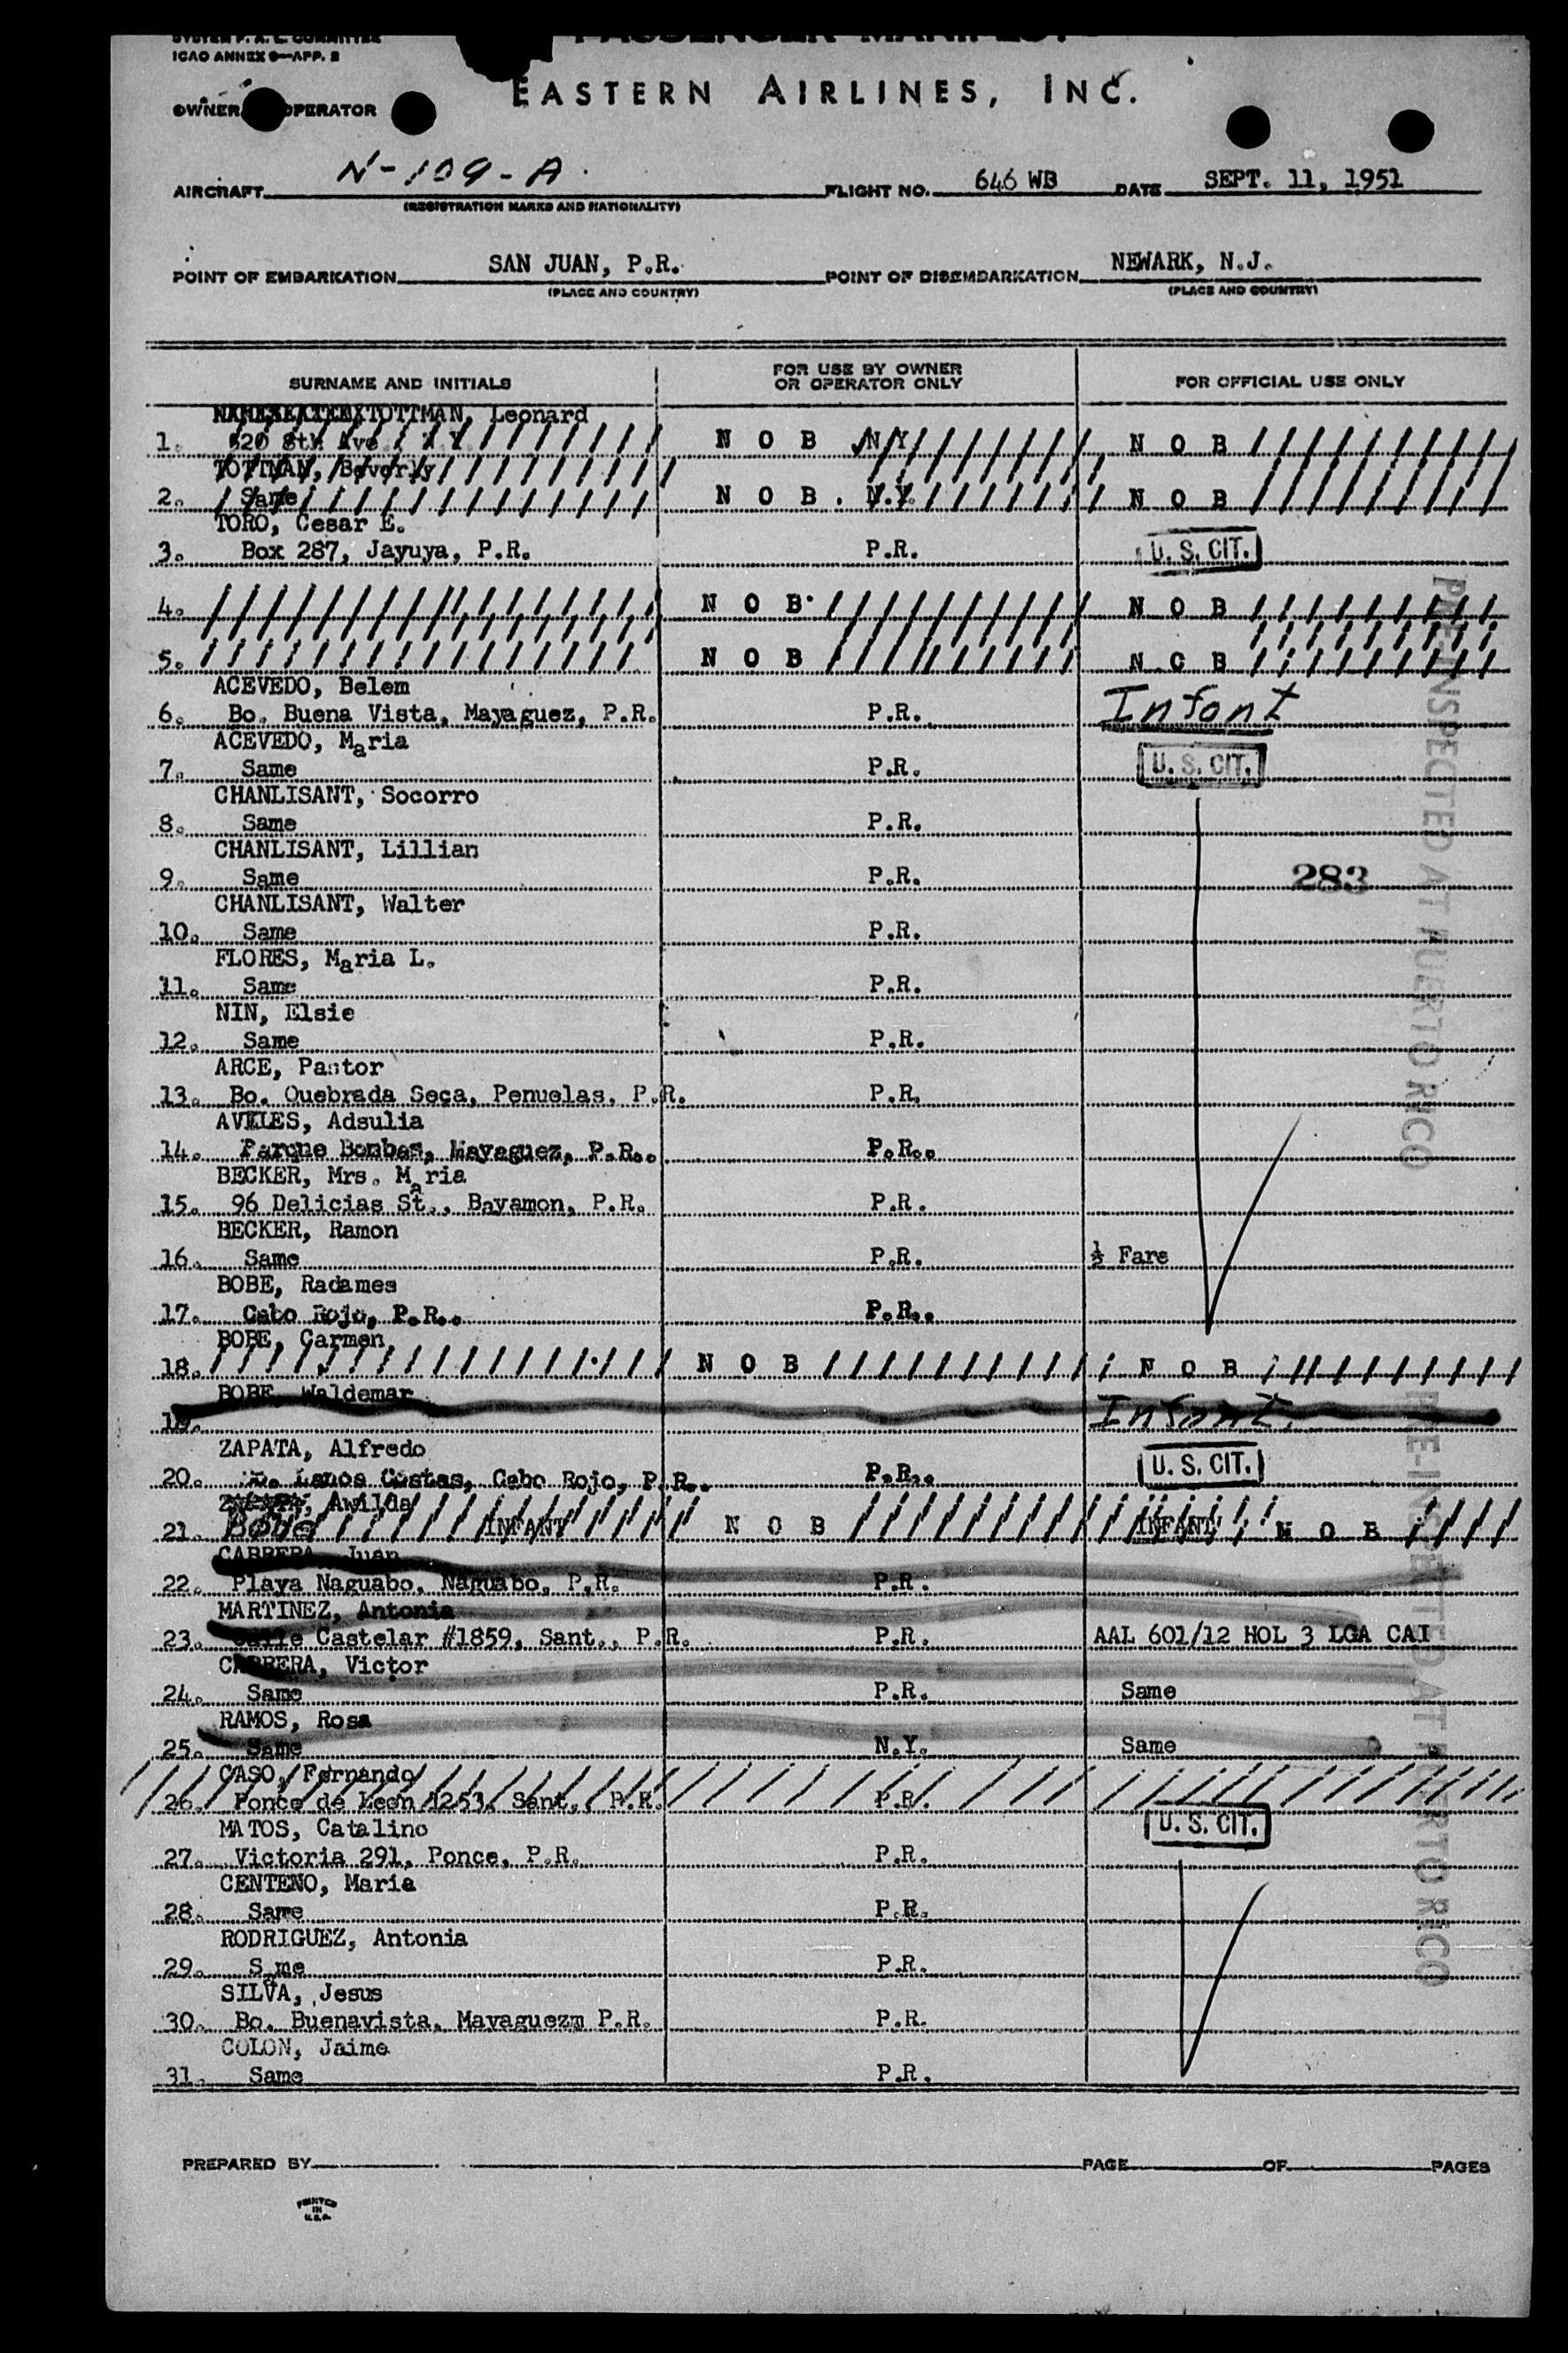 SYSTEM F. A. L. COMMITTEE
ICAO ANNEX 9—APP. 2
PASSENGER MANIFEST
EASTERN AIRLINES, INC.
OWNER OPERATOR
AIRCRAFT N-109-A FLIGHT NO. 646 WB DATE SEPT. 11, 1951
(REGISTRATION MARKS AND NATIONALITY)
POINT OF EMBARKATION SAN JUAN, P.R. POINT OF DISEMBARKATION NEWARK, N.J.
(PLACE AND COUNTRY) (PLACE AND COUNTRY)
SURNAME AND INITIALS FOR USE BY OWNER OR OPERATOR ONLY FOR OFFICIAL USE ONLY
TOTTMAN, Leonard
1. 520 8th Ave., N.Y. N O B N.Y. N O B
TOTTMAN, Beverly
2. Same N O B . N.Y. N O B
TORO, Cesar E.
3. Box 287, Jayuya, P.R. P.R. U. S. CIT.
4. N O B N O B
5. N O B N O B
ACEVEDO, Belem
6. Bo. Buena Vista, Mayaguez, P.R. P.R. Infant
ACEVEDO, Maria
7. Same P.R. U. S. CIT.
CHANLISANT, Socorro
8. Same P.R.
CHANLISANT, Lillian
9. Same P.R. 283
CHANLISANT, Walter
10. Same P.R.
FLORES, Maria L.
11. Same P.R.
NIN, Elsie
12. Same P.R.
ARCE, Pastor
13. Bo. Quebrada Seca, Penuelas, P.R. P.R.
AVILES, Adsulia
14. Parque Bombas, Mayaguez, P.R.. P.R..
BECKER, Mrs. Maria
15. 96 Delicias St., Bayamon, P.R. P.R.
BECKER, Ramon
16. Same P.R. ½ Fare
BOBE, Radames
17. Cabo Rojo, P.R.. P.R..
BOBE, Carmen
18. N O B N O B
BOBE, Waldemar
19. Infant.
ZAPATA, Alfredo
20. Cabo Rojo, P.R.. P.R.. U. S. CIT.
Awilda
21. Bobe INFANT N O B INFANT N O B
CABRERA, Juan
22. Playa Naguabo, Naguabo, P.R. P.R.
MARTINEZ, Antonia
23. Calle Castelar #1859, Sant., P.R. P.R. AAL 601/12 HOL 3 LGA CAI
CABRERA, Victor
24. Same P.R. Same
RAMOS, Rosa
25. Same N.Y. Same
CASO, Fernando
26. Ponce de Leon 1253, Sant., P.R. P.R.
MATOS, Catalino
27. Victoria 291, Ponce, P.R. P.R. U. S. CIT.
CENTENO, Maria
28. Same P.R.
RODRIGUEZ, Antonia
29. Same P.R.
SILVA, Jesus
30. Bo. Buenavista, Mayaguezm P.R. P.R.
COLON, Jaime
31. Same P.R.
PRE-INSPECTED AT PUERTO RICO
PRE-INSPECTED AT PUERTO RICO
PREPARED BY PAGE OF PAGES
PRINTED
IN
U.S.A.